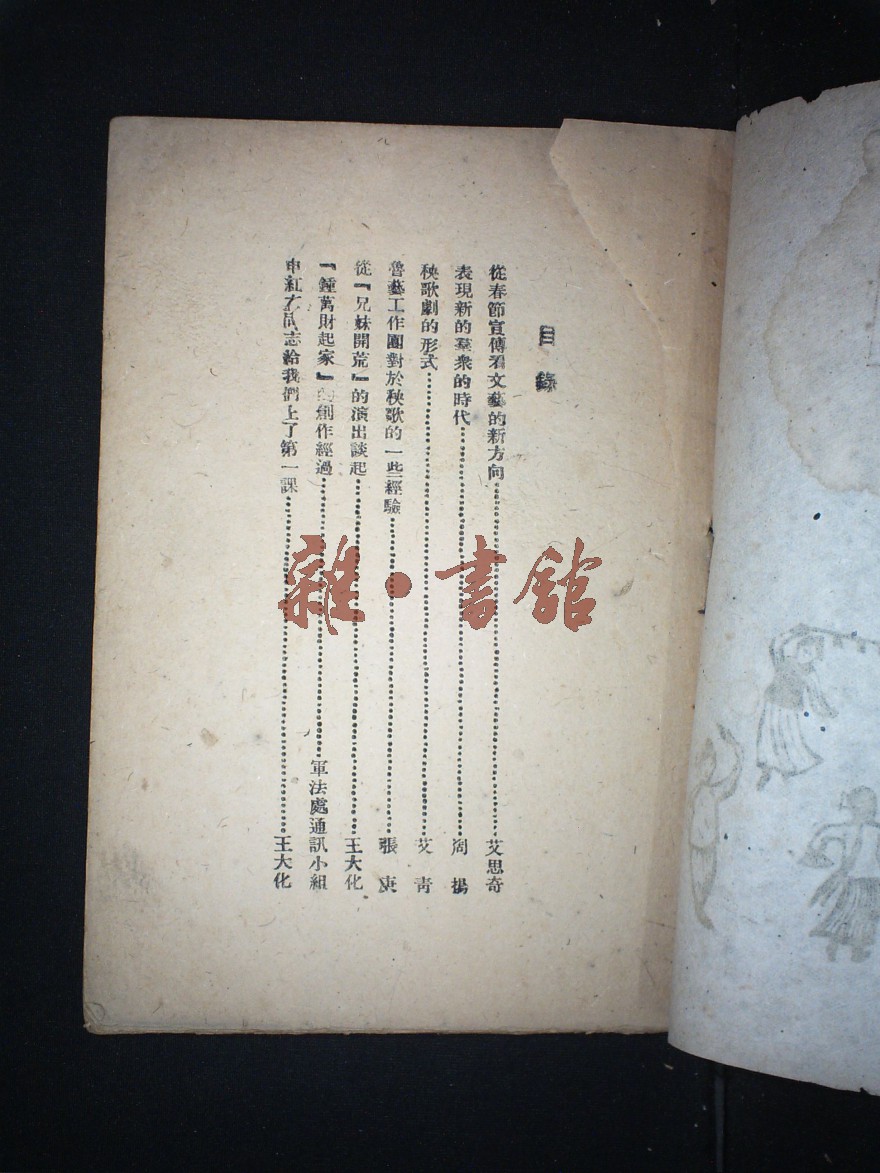 目錄
從春節宣傳看文藝的新方向……艾思奇
表現新的羣衆的時代……周揚
秧歌劇的形式……艾青
魯藝工作團對於秧歌的一些經驗……張庚
從『兄妹開荒』的演出談起……王大化
『鍾萬財起家』的創作經過……軍法處通訊小組
申紅友同志給我們上了第一課……王大化
雜·書館